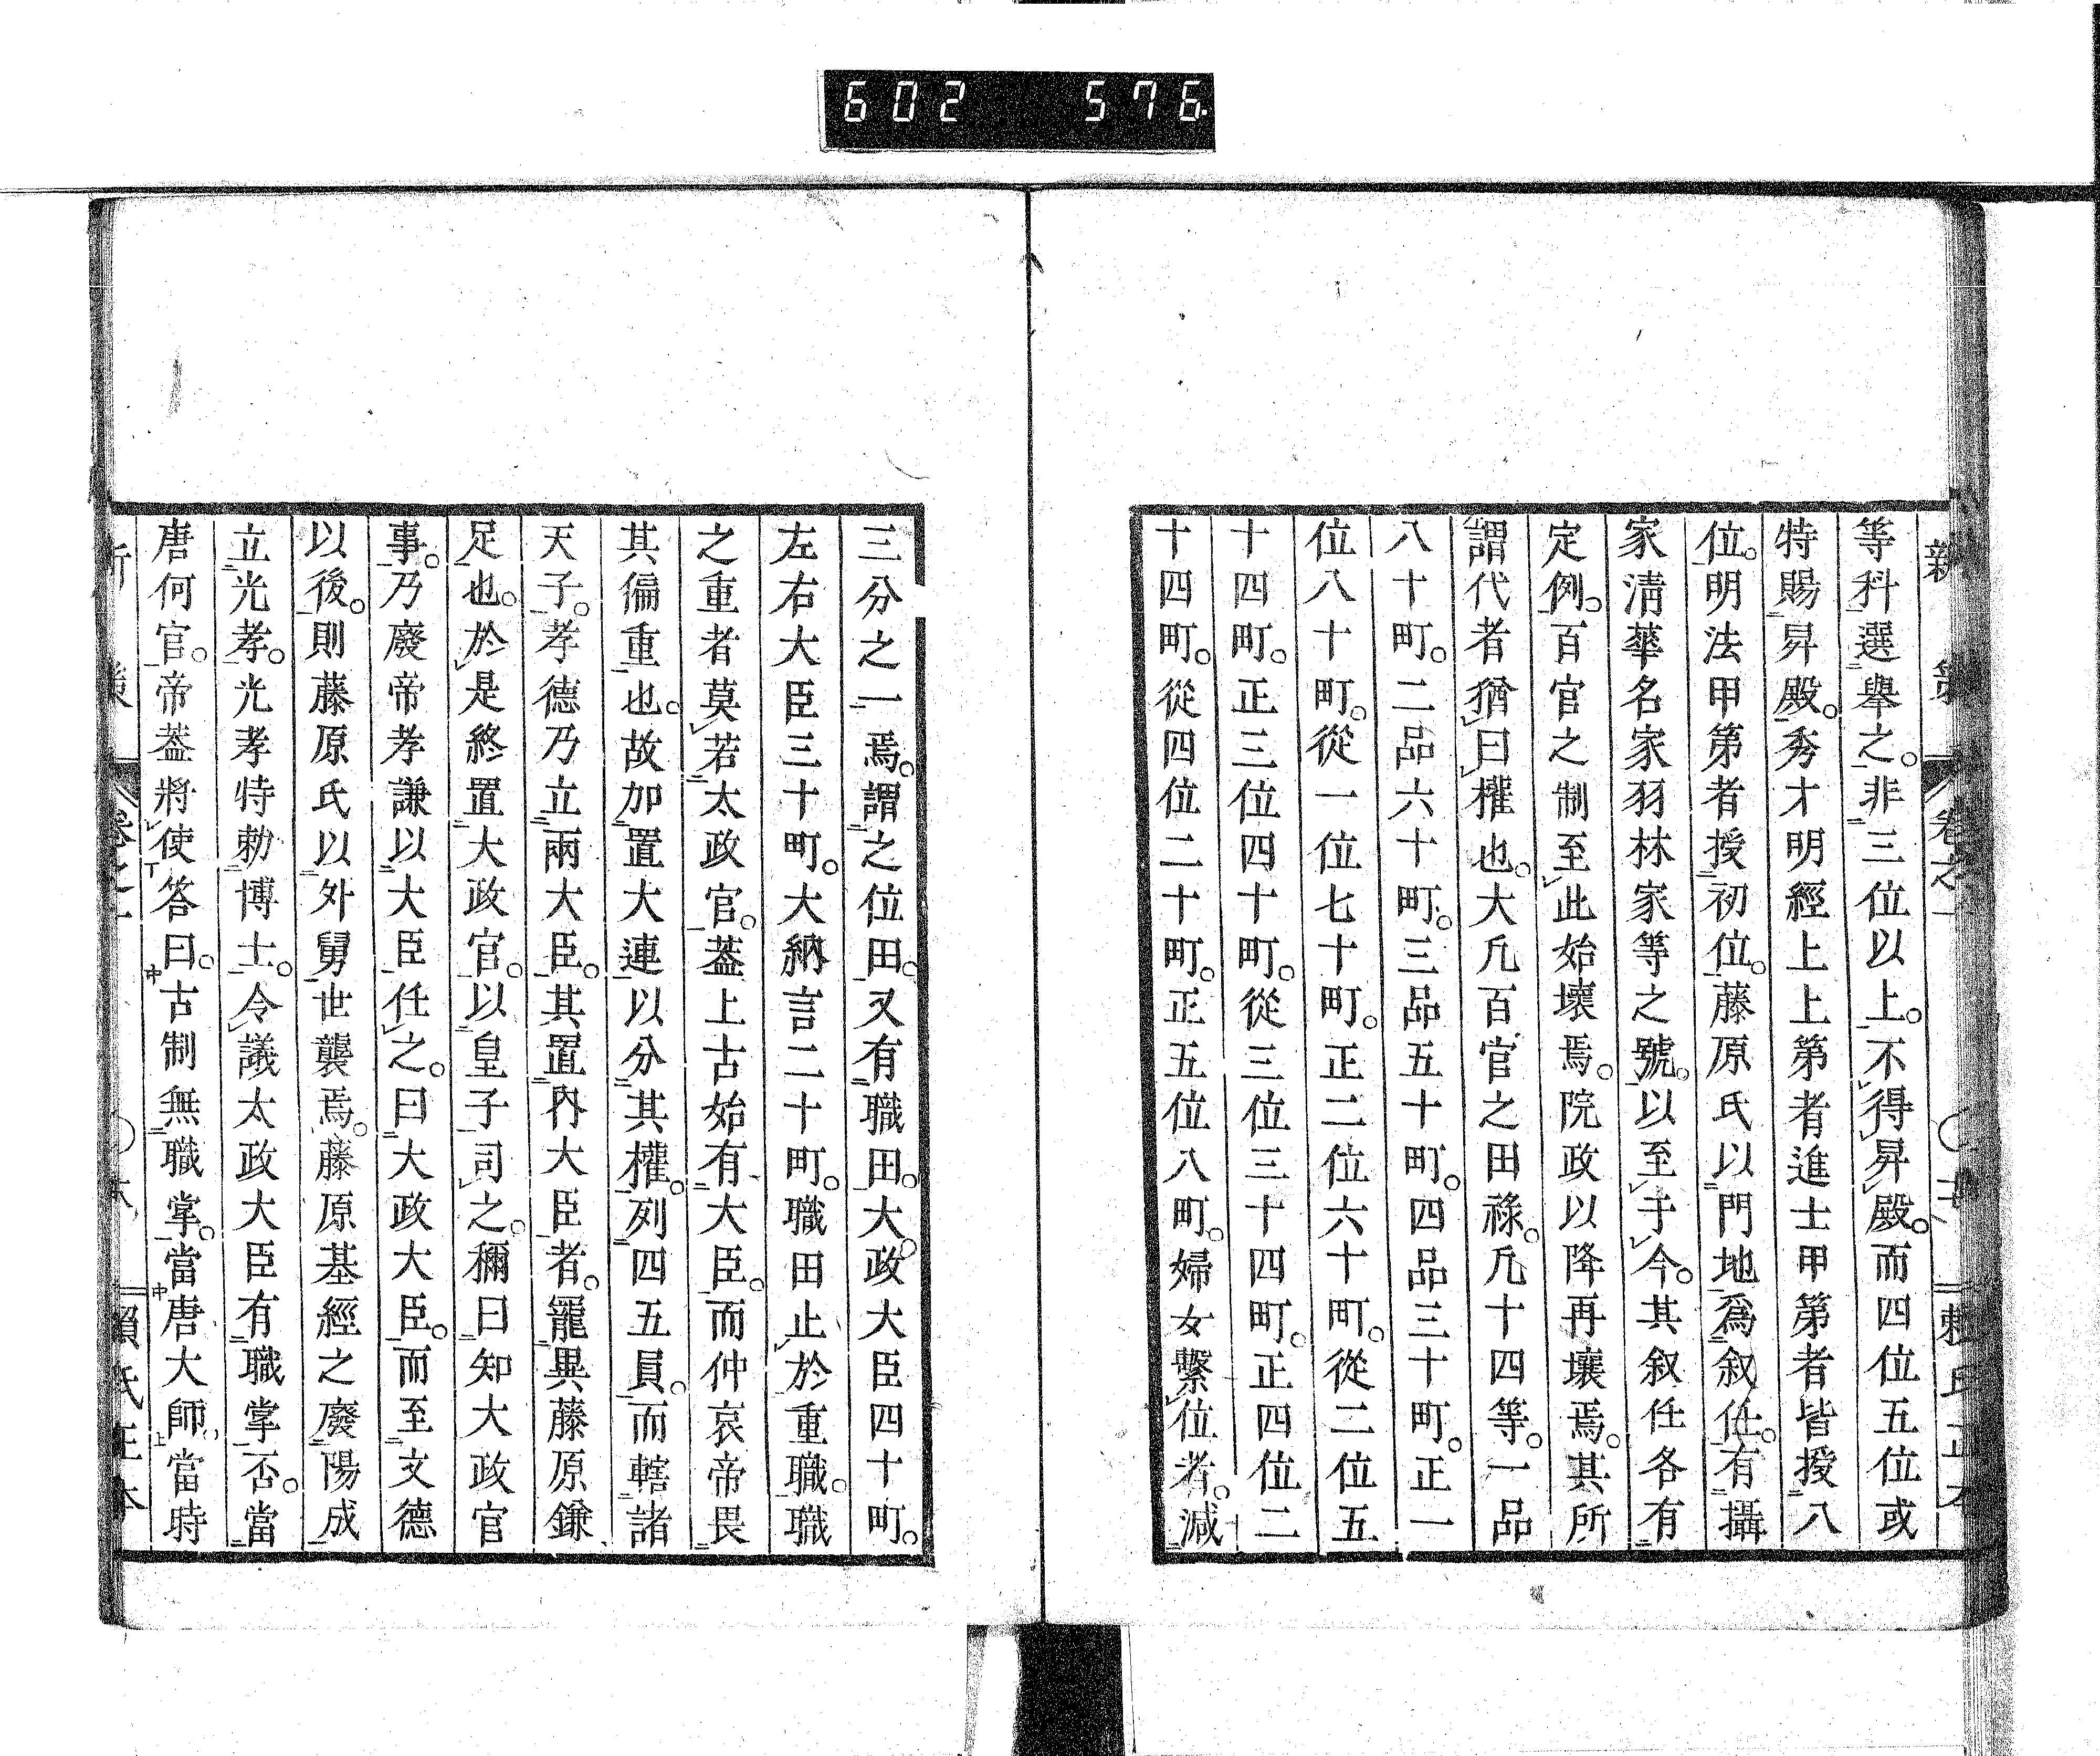 602 576
新策 卷之一 賴氏正本
等科選舉之。非三位以上。不得昇殿。而四位五位或
特賜昇殿。秀才明經上上第者進士甲第者皆授八
位。明法甲第者授初位。藤原氏以門地爲叙任。有攝
家淸華名家羽林家等之號。以至于今。其叙任各有
定例。百官之制至此始壞焉。院政以降再壞焉。其所
謂代者猶曰權也。大凡百官之田祿。凡十四等。一品
八十町。二品六十町。三品五十町。四品三十町。正一
位八十町。從一位七十町。正二位六十町。從二位五
十四町。正三位四十町。從三位三十四町。正四位二
十四町。從四位二十町。正五位八町。婦女繫位者。減
三分之一焉。謂之位田。又有職田。大政大臣四十町。
左右大臣三十町。大納言二十町。職田止於重職。職
之重者莫若太政官。蓋上古始有大臣。而仲哀帝畏
其偏重也。故加置大連以分其權。列四五員。而轄諸
天子。孝德乃立兩大臣。其置內大臣者。寵異藤原鎌
足也。於是終置大政官。以皇子司之。稱曰知大政官
事。乃廢帝孝謙以大臣任之。曰大政大臣。而至文德
以後。則藤原氏以外舅世襲焉。藤原基經之廢陽成
立光孝。光孝特勅博士。令議太政大臣有職掌否。當
唐何官。帝蓋將使答曰。古制無職掌。當唐大師。當時